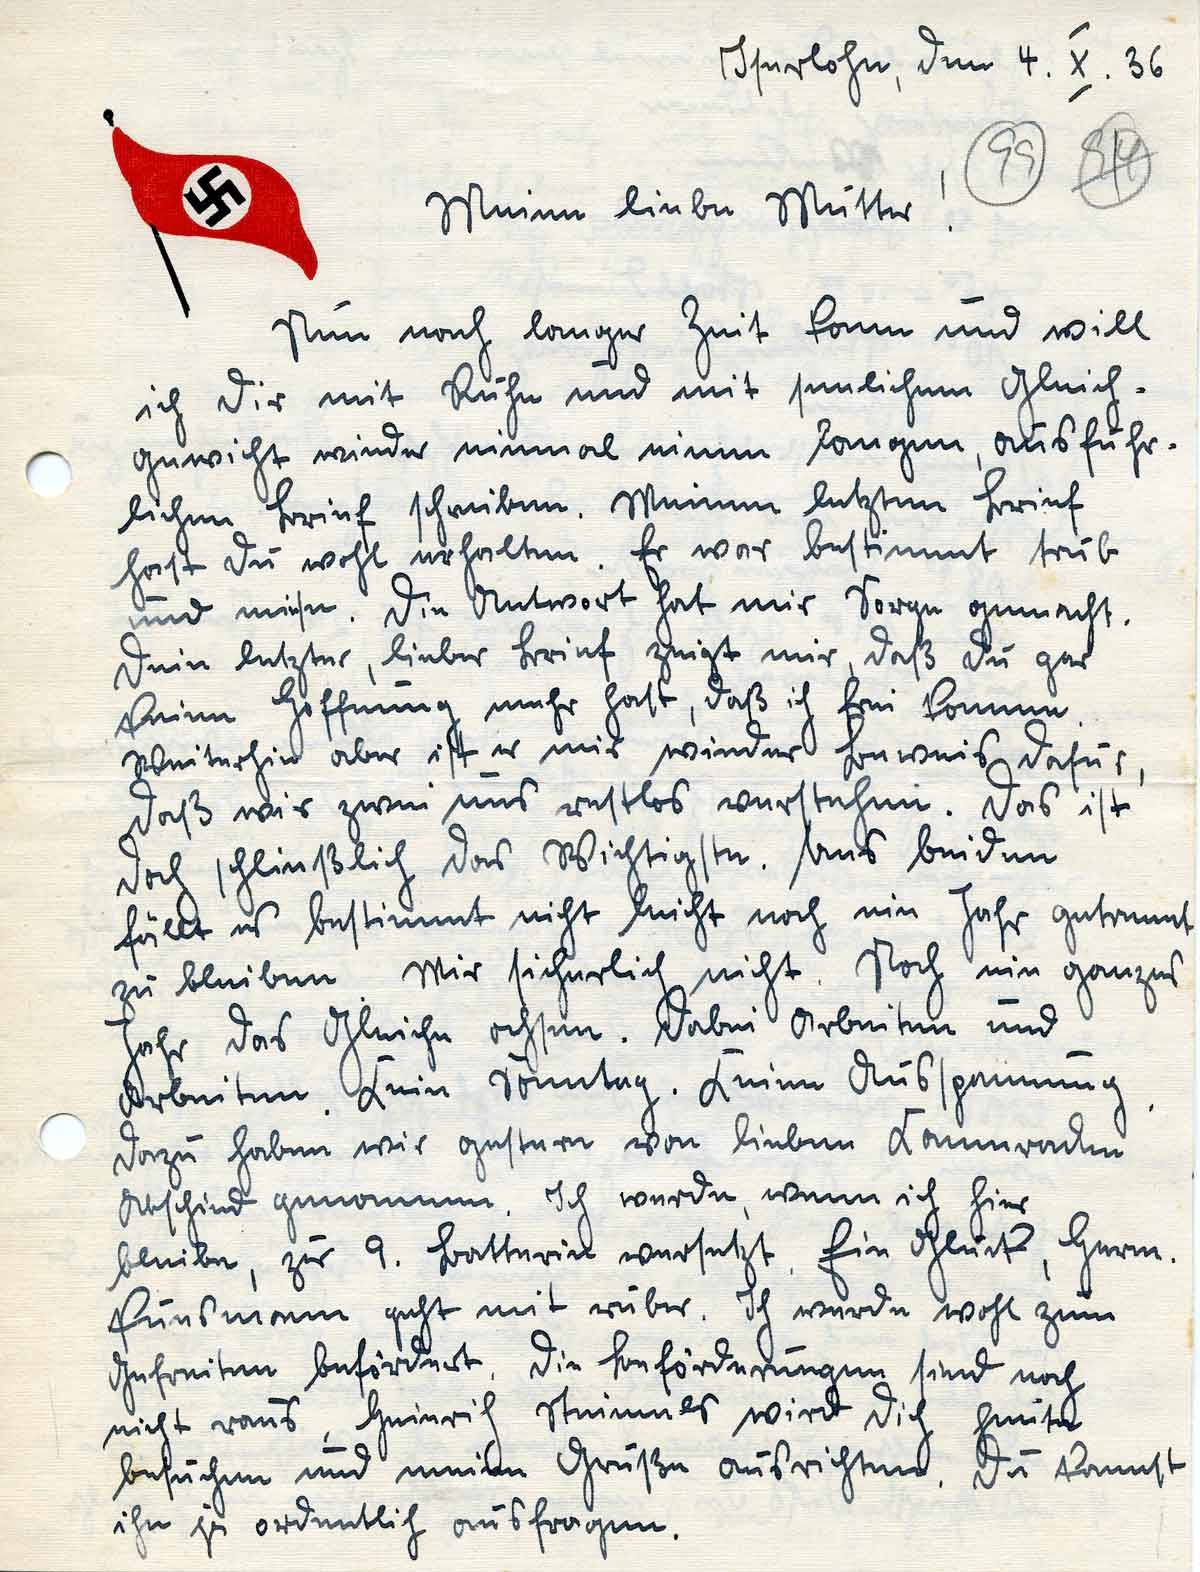 Iserlohn, den 4. X. 36
99 84
Meine liebe Mutter!
Nun nach langer Zeit kann und will
ich Dir mit Ruhe und mit seelichem Gleich-
gewicht wieder einmal einen langen, ausführ-
lichen Brief schreiben. Meinen letzten Brief
hast Du wohl erhalten. Er war bestimmt trüb
und mies. Die Antwort hat mir Sorge gemacht.
Dein letzter, lieber Brief zeigt mir, daß Du gar
keine Hoffnung mehr hast, daß ich frei komme.
Weiterhin aber ist er mir wieder Beweis dafür,
daß wir zwei uns restlos verstehen. Das ist
doch schließlich das Wichtigste. Uns beiden
fällt es bestimmt nicht leicht noch ein Jahr getrennt
zu bleiben. Mir sicherlich nicht. Noch ein ganzes
Jahr das Gleiche ochsen. Dabei Arbeiten und
Arbeiten. Kein Sonntag. Keine Ausspannung.
Dazu haben wir gestern von lieben Kameraden
Abschied genommen. Ich werde, wenn ich hier
bleibe, zur 9. Batterie versetzt. Ein Glück, Herm.
Funsmann geht mit rüber. Ich werde wohl zum
Gefreiten befördert. Die Beförderungen sind noch
nicht raus. Heinrich wird Dich heute
besuchen und meine Grüße ausrichten. Du kannst
ihn ja ordentlich ausfragen.